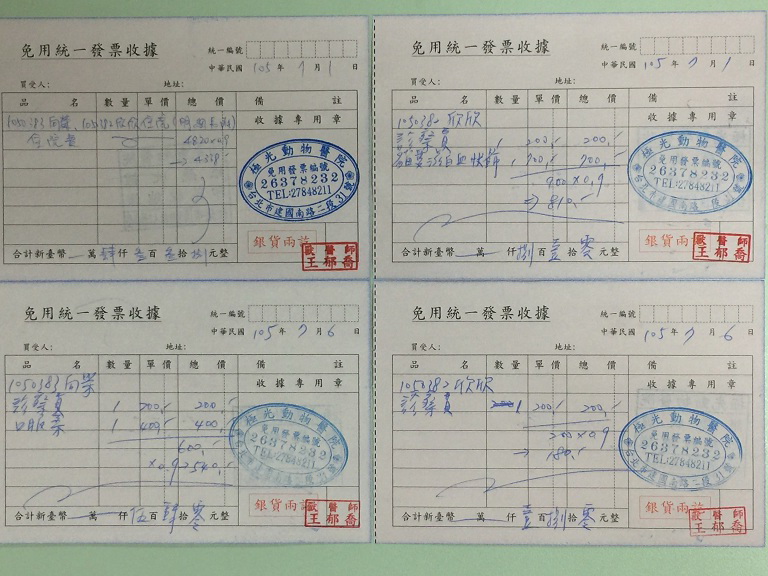 免用統一發票收據
統一編號
中華民國 105 年 7 月 1 日
買受人： 地址：
品 名 數量 單價 總價 備 註
收據專用章
住院費 4820×0.9
→ 4338.-
極光動物醫院
免用發票編號
26378232
TEL:27848211
台北市建國南路二段31號
銀貨兩訖
獸醫師
王郁喬
合計新臺幣 萬 肆 仟 叁 百 叁 拾 捌 元整
免用統一發票收據
統一編號
中華民國 105 年 7 月 1 日
買受人： 地址：
品 名 數量 單價 總價 備 註
1050382 欣欣 收據專用章
診察費 1 200.- 200.-
1 700.- 700.-
900×0.9
→ 810.-
極光動物醫院
免用發票編號
26378232
TEL:27848211
台北市建國南路二段31號
銀貨兩訖
獸醫師
王郁喬
合計新臺幣 萬 仟 捌 百 壹 拾 零 元整
免用統一發票收據
統一編號
中華民國 105 年 7 月 6 日
買受人： 地址：
品 名 數量 單價 總價 備 註
1050383 向榮 收據專用章
診察費 1 200.- 200.-
口服藥 1 400.- 400.-
600.-
×0.9 = 540.-
極光動物醫院
免用發票編號
26378232
TEL:27848211
銀貨兩訖
獸醫師
王郁喬
合計新臺幣 萬 仟 伍 百 肆 拾 零 元整
免用統一發票收據
統一編號
中華民國 105 年 7 月 6 日
買受人： 地址：
品 名 數量 單價 總價 備 註
1050382 欣欣 收據專用章
診察費 1 200.- 200.-
200×0.9
→ 180.-
極光動物醫院
免用發票編號
26378232
TEL:27848211
銀貨兩訖
獸醫師
王郁喬
合計新臺幣 萬 仟 壹 百 捌 拾 零 元整